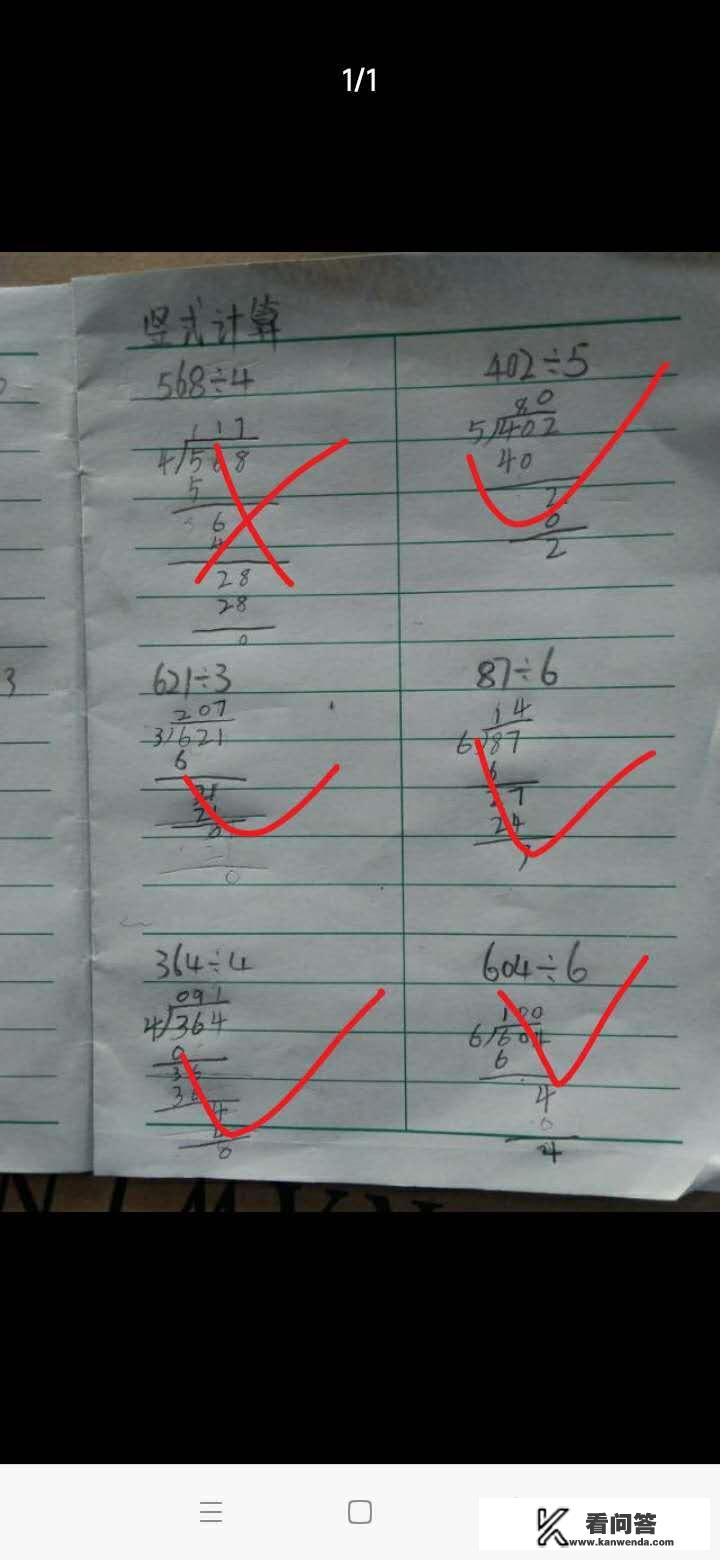 1/1
竖式计算
568÷4
117
4/568
5
6
4
28
28
0
402÷5
80
5/402
40
2
0
2
621÷3
207
3/621
6
21
21
0
0
87÷6
14
6/87
6
27
24
3
364÷4
091
4/364
0
36
36
4
4
0
604÷6
100
6/604
6
4
0
4
3
看问答
www.kanwenda.com